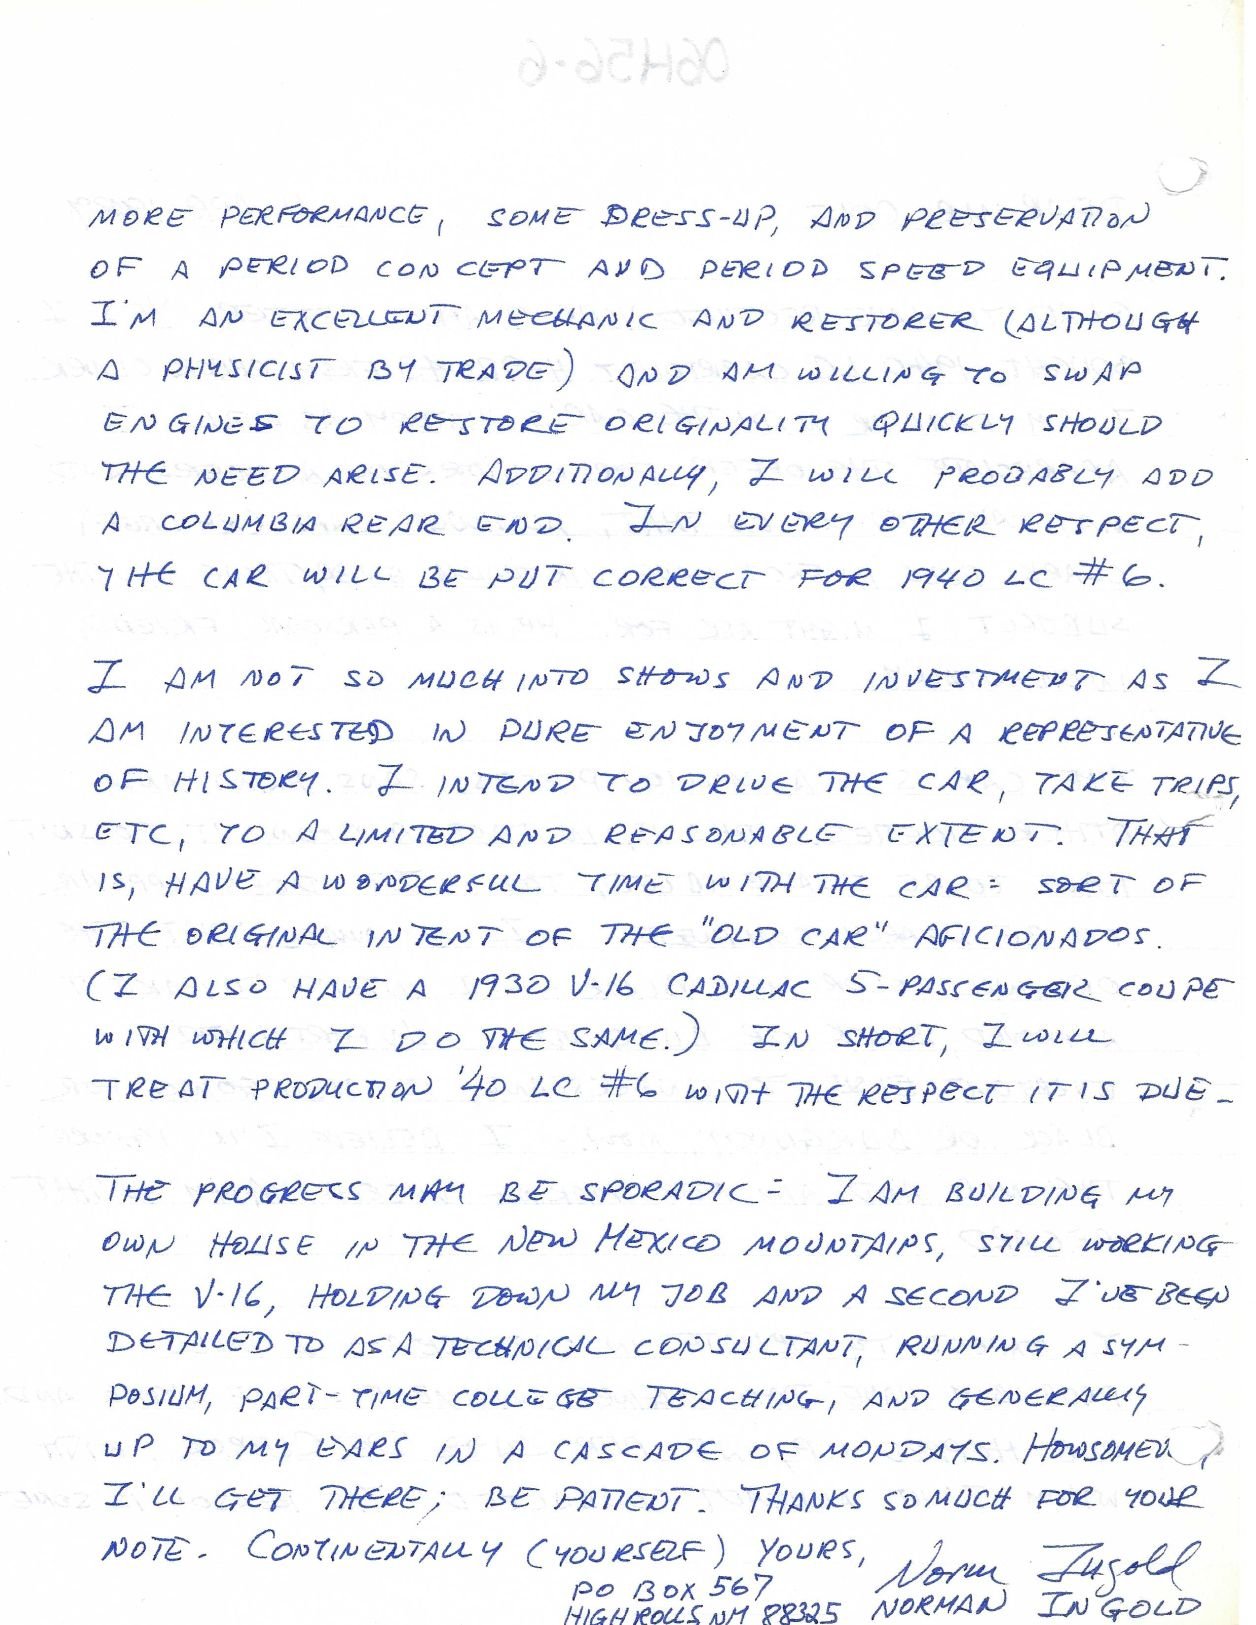 06H56-6
MORE PERFORMANCE, SOME DRESS-UP, AND PRESERVATION
OF A PERIOD CONCEPT AND PERIOD SPEED EQUIPMENT.
I'M AN EXCELLENT MECHANIC AND RESTORER (ALTHOUGH
A PHYSICIST BY TRADE) AND AM WILLING TO SWAP
ENGINES TO RESTORE ORIGINALITY QUICKLY SHOULD
THE NEED ARISE. ADDITIONALLY, I WILL PROBABLY ADD
A COLUMBIA REAR END. IN EVERY OTHER RESPECT,
THE CAR WILL BE PUT CORRECT FOR 1940 LC #6.
I AM NOT SO MUCH INTO SHOWS AND INVESTMENT AS I
AM INTERESTED IN PURE ENJOYMENT OF A REPRESENTATIVE
OF HISTORY. I INTEND TO DRIVE THE CAR, TAKE TRIPS,
ETC, TO A LIMITED AND REASONABLE EXTENT. THAT
IS, HAVE A WONDERFUL TIME WITH THE CAR = SORT OF
THE ORIGINAL INTENT OF THE "OLD CAR" AFICIONADOS.
(I ALSO HAVE A 1930 V-16 CADILLAC 5-PASSENGER COUPE
WITH WHICH I DO THE SAME.) IN SHORT, I WILL
TREAT PRODUCTION '40 LC #6 WITH THE RESPECT IT IS DUE-
THE PROGRESS MAY BE SPORADIC = I AM BUILDING MY
OWN HOUSE IN THE NEW MEXICO MOUNTAINS, STILL WORKING
THE V-16, HOLDING DOWN MY JOB AND A SECOND I'VE BEEN
DETAILED TO AS A TECHNICAL CONSULTANT, RUNNING A SYM-
POSIUM, PART-TIME COLLEGE TEACHING, AND GENERALLY
UP TO MY EARS IN A CASCADE OF MONDAYS. HOWSOMEV
I'LL GET THERE; BE PATIENT. THANKS SO MUCH FOR YOUR
NOTE. CONTINENTALLY (YOURSELF) YOURS,
Norm Ingold
PO BOX 567
HIGH ROLLS NM 88325 NORMAN INGOLD